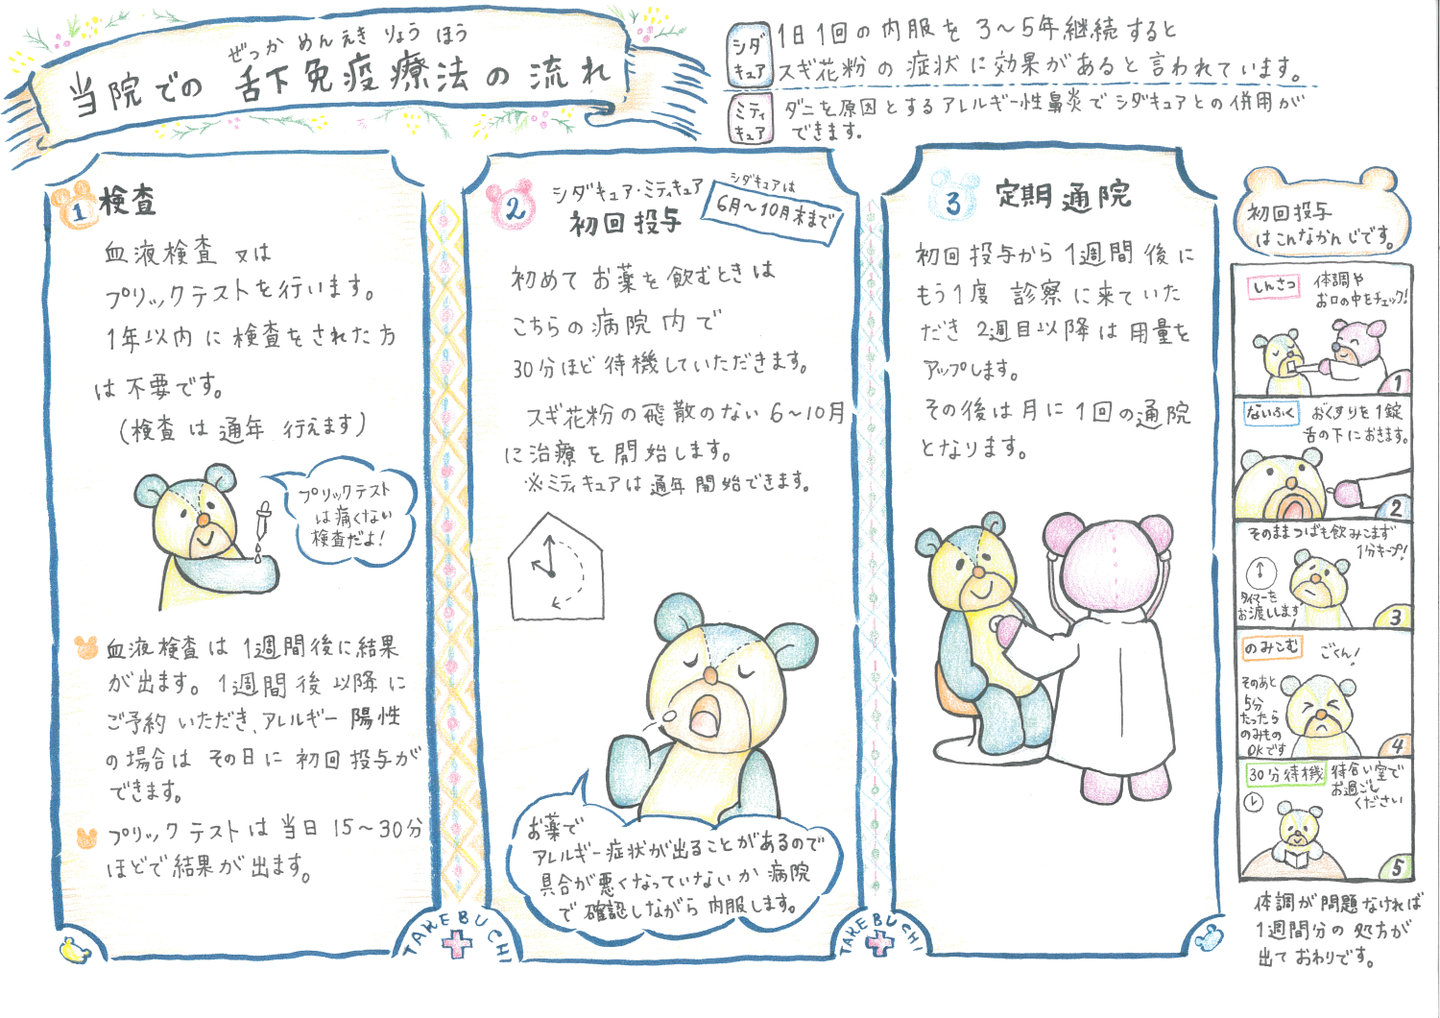 ぜっか めんえき りょう ほう
当院での 舌下免疫療法の流れ
シダキュア
1日1回の内服を 3〜5年継続すると
スギ花粉の症状に効果があると言われています。
ミティキュア
ダニを原因とするアレルギー性鼻炎でシダキュアとの併用が
できます。
1 検査
血液検査 又は
プリックテストを行います。
1年以内に検査をされた方
は不要です。
(検査は通年 行えます)
プリックテスト
は痛くない
検査だよ!
血液検査は1週間後に結果
が出ます。1週間後以降に
ご予約いただき、アレルギー陽性
の場合は その日に初回投与が
できます。
プリックテストは当日15〜30分
ほどで結果が出ます。
TAKEBUCHI
2 シダキュア・ミティキュア
初回投与
シダキュアは
6月〜10月末まで
初めてお薬を飲むときは
こちらの病院内で
30分ほど待機していただきます。
スギ花粉の飛散のない6〜10月
に治療を開始します。
※ミティキュアは通年開始できます。
お薬で
アレルギー症状が出ることがあるので
具合が悪くなっていないか病院
で確認しながら内服します。
TAKEBUCHI
3 定期通院
初回投与から1週間後に
もう1度 診察に来ていた
だき 2週目以降は用量を
アップします。
その後は月に1回の通院
となります。
初回投与
はこんなかんじです。
しんさつ
体調や
お口の中をチェック!
1
ないふく
おくすりを1錠
舌の下におきます。
2
そのままつばも飲みこまず
1分キープ!
タイマーを
お渡しします
3
のみこむ
ごくん!
そのあと
5分
たったら
のみもの
OKです
4
30分待機
待合い室で
お過ごし
ください
5
体調が問題なければ
1週間分の処方が
出ておわりです。